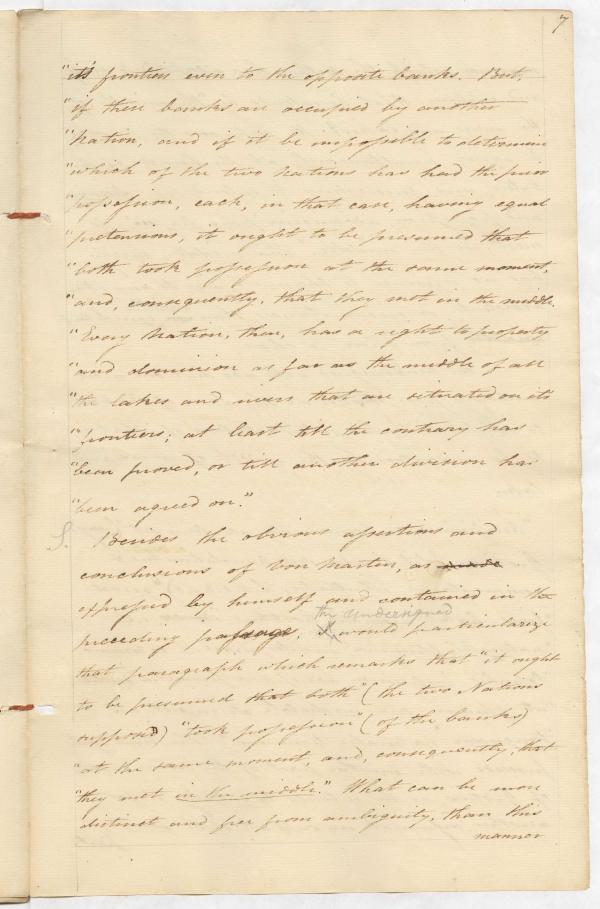 7
"it's frontiers even to the opposite banks. But,
"if these banks are occupied by another
"Nation, and if it be impossible to determine
"which of the two Nations has had the prior
"possession, each, in that case, having equal
"pretensions, it ought to be presumed that
"both took possession at the same moment,
"and, consequently, that they met in the middle.
"Every Nation, then, has a right to property
"and dominion as far as the middle of all
"the lakes and rivers that are situated on it's
"frontiers; at least till the contrary has
"been proved, or till another division has
"been agreed on."
Besides the obvious assertions and
conclusions of Von Martens, as
expressed by himself and contained in the
the undersigned
preceding passage, I would particularize
that paragraph which remarks that "it ought
to be presumed that both" (the two Nations
supposed) "took possession" (of the banks)
"at the same moment, and, consequently, that
"they met in the middle." What can be more
distinct and free from ambiguity, than this
manner